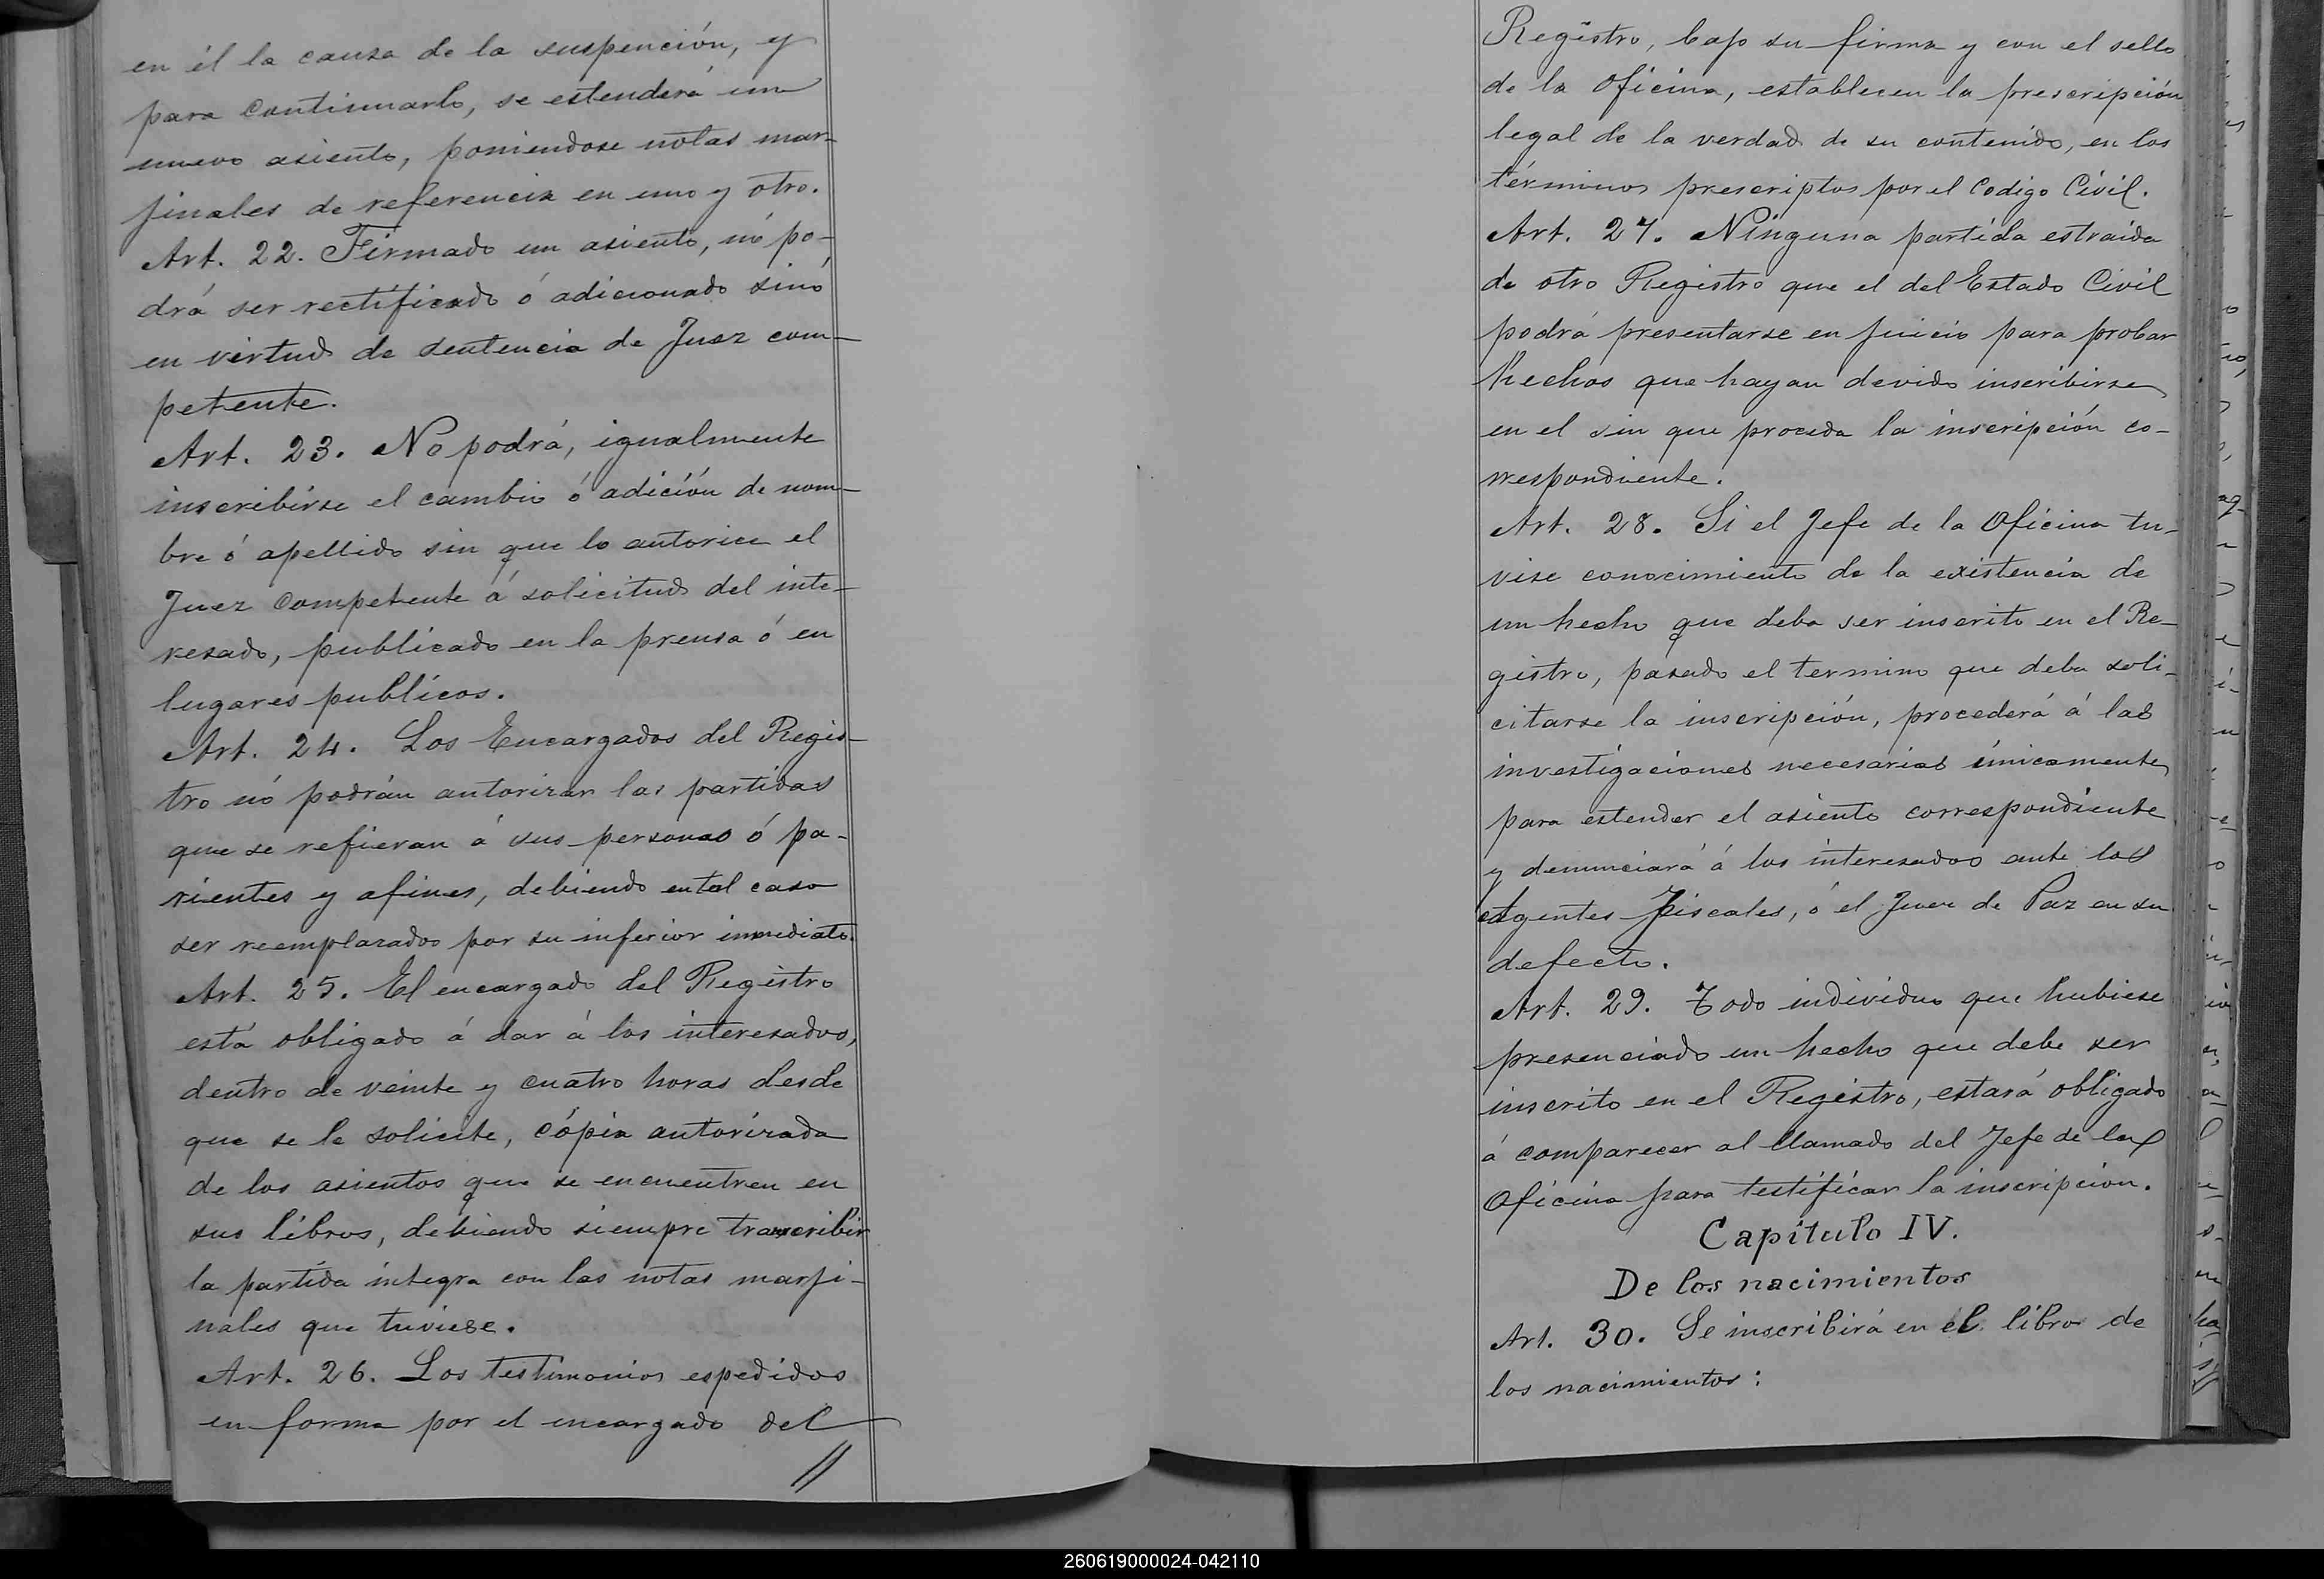 en él la causa de la suspención, y
para continuarlo, se estenderá un
nuevo asiento, poniendose notas mar-
jinales de referencia en uno y otro.
Art. 22. Firmado un asiento, nó po-
drá ser rectificado ó adicionado sinó
en virtud de sentencia de Juez com-
petente.
Art. 23. No podrá, igualmente
inscribirse el cambio ó adición de nom-
bre ó apellido sin que lo autorice el
Juez competente á solicitud del inte-
resado, publicado en la prensa ó en
lugares publicos.
Art. 24. Los Encargados del Regis-
tro nó podrán autorizar las partidas
que se refieran á sus personas ó pa-
rientes y afines, debiendo en tal caso
ser reemplazados por su inferior inmediato.
Art. 25. El encargado del Registro
está obligado á dar á los interesados,
dentro de veinte y cuatro horas desde
que se le solicite, cópia autorizada
de los asientos que se encuentren en
sus libros, debiendo siempre transcribir
la partida integra con las notas marji-
nales que tuviese.
Art. 26. Los testimonios espedidos
en forma por el encargado del
//
Registro, bajo su firma y con el sello
de la Oficina, establecen la prescripción
legal de la verdad de su contenido, en los
términos prescriptos por el Codigo Civil.
Art. 27. Ninguna partida estraida
de otro Registro que el del Estado Civil
podrá presentarse en juicio para probar
hechos que hayan devido inscribirse
en el sin que proceda la inscripción co-
rrespondiente.
Art. 28. Si el Jefe de la Oficina tu-
vise conocimiento de la existencia de
un hecho que deba ser inscrito en el Re-
gistro, pasado el termino que deba soli-
citarse la inscripción, procederá á las
investigaciones necesarias únicamente
para estender el asiento correspondiente
y denunciará á los interesados ante los
Agentes Fiscales, ó el Juez de Paz en su
defecto.
Art. 29. Todo individuo que hubiese
presenciado un hecho que debe ser
inscrito en el Registro, estará obligado
á comparecer al llamado del Jefe de la
Oficina para testificar la inscripción.
Capítulo IV.
De los nacimientos
Art. 30. Se inscribirá en el libro de
los nacimientos:
260619000024-042110